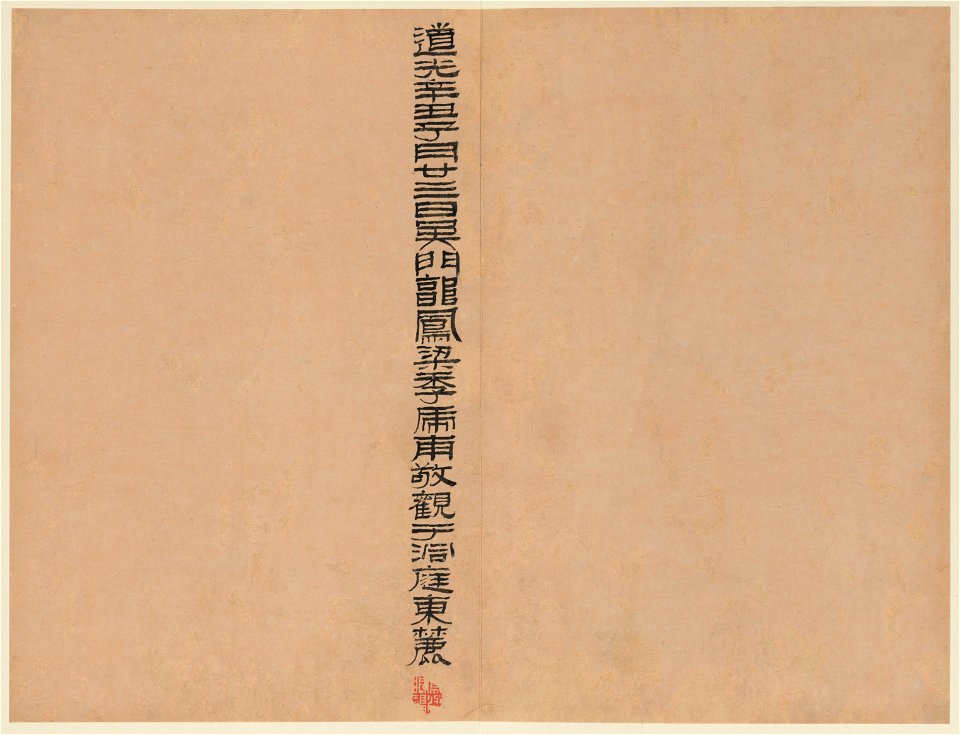 道光辛丑子月廿三日吳門鳳梁季乕甫敬觀于洞庭東麓